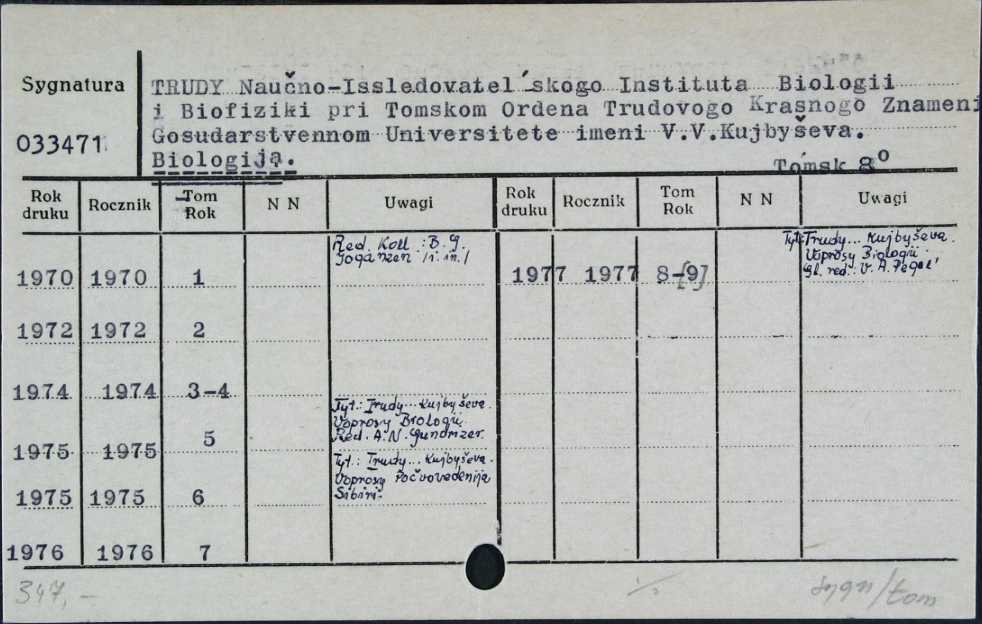 Sygnatura
033471
TRUDY Naučno-Issledovatel´skogo Instituta Biologii
i Biofiziki pri Tomskom Ordena Trudovogo Krasnogo Znameni
Gosudarstvennom Universitete imeni V.V.Kujbyševa.
Biologija.
Tomsk 8º
Rok druku Rocznik Tom Rok N N Uwagi Rok druku Rocznik Tom Rok N N Uwagi
1970 1970 1
Red. Koll.: B.G.
Joganzen /i in./
1977 1977 8-9
Tyt: Trudy... Kujbyševa.
Voprosy Biologii.
Gl. red.: V.A. Pegel'
1972 1972 2
1974 1974 3-4
1975 1975 5
Tyt.: Trudy... Kujbyševa.
Voprosy Biologii.
Red. A.N. Gundrizer.
1975 1975 6
Tyt.: Trudy... Kujbyševa.
Voprosy Počvovedenija
Sibiri.
1976 1976 7
347,-
sygn/tom